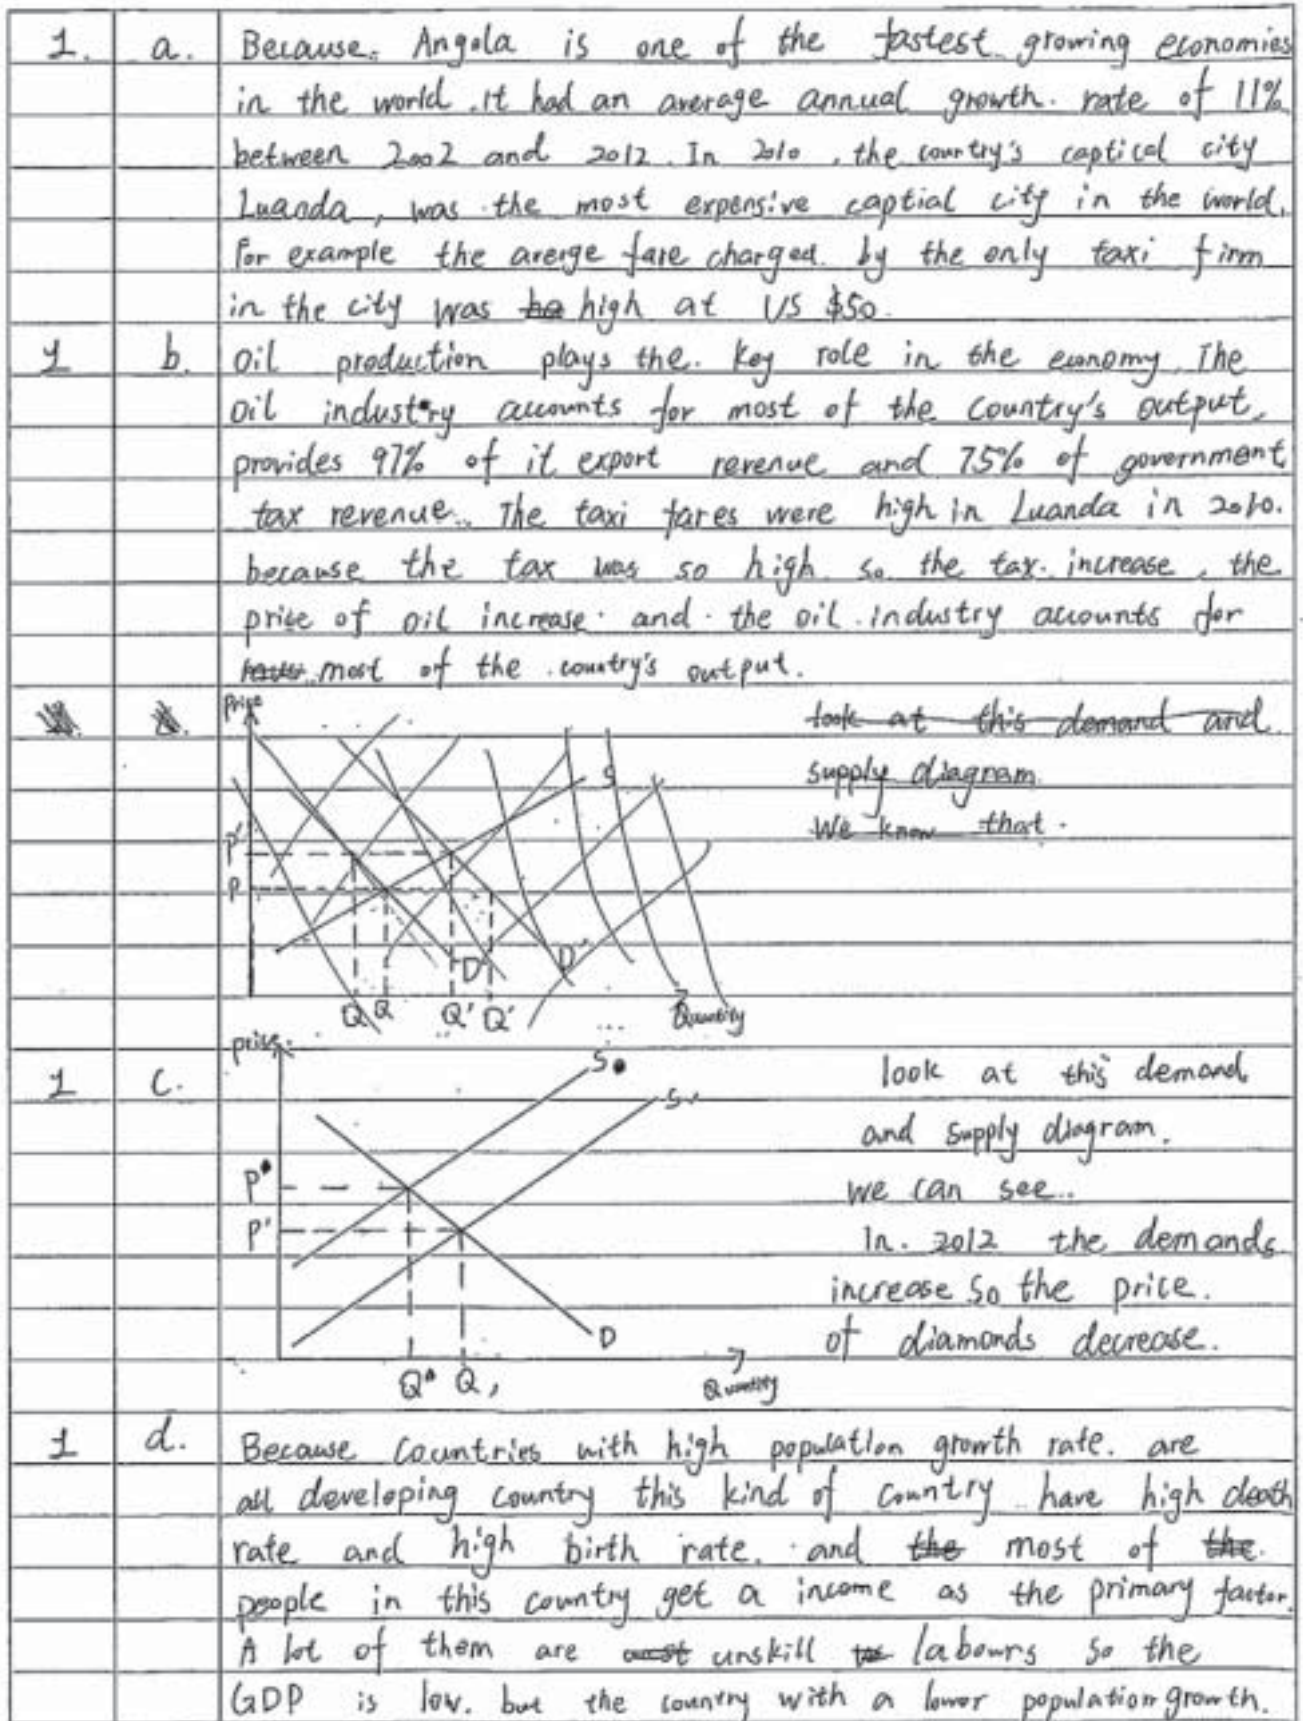 1. a. Because. Angola is one of the fastest growing economies
in the world. It had an average annual growth. rate of 11%
between 2002 and 2012. In 2010, the country's captical city
Luanda, was the most expensive captial city in the world.
For example the averge fare charged. by the only taxi firm
in the city was high at US $50.
1 b. Oil production plays the. key role in the economy. The
oil industry accounts for most of the country's output,
provides 97% of it export revenue and 75% of government
tax revenue.. The taxi fares were high in Luanda in 2010.
because the tax was so high. so the tax. increase, the
price of oil increase. and. the oil industry accounts for
most of the country's output.
price look at this demand and
S supply diagram
P' We know that.
P
D D'
Q Q Q' Q' Quantity
price
1 c. S look at this demand
S' and supply diagram.
P we can see..
P' In. 2012 the demands
increase so the price.
D of diamonds decrease.
Q Q, Quantity
1 d. Because countries with high population growth rate. are
all developing country this kind of country have high death
rate and high birth rate. and the most of the
people in this country get a income as the primary factor.
A lot of them are unskill labours so the
GDP is low. but the country with a lower population growth.